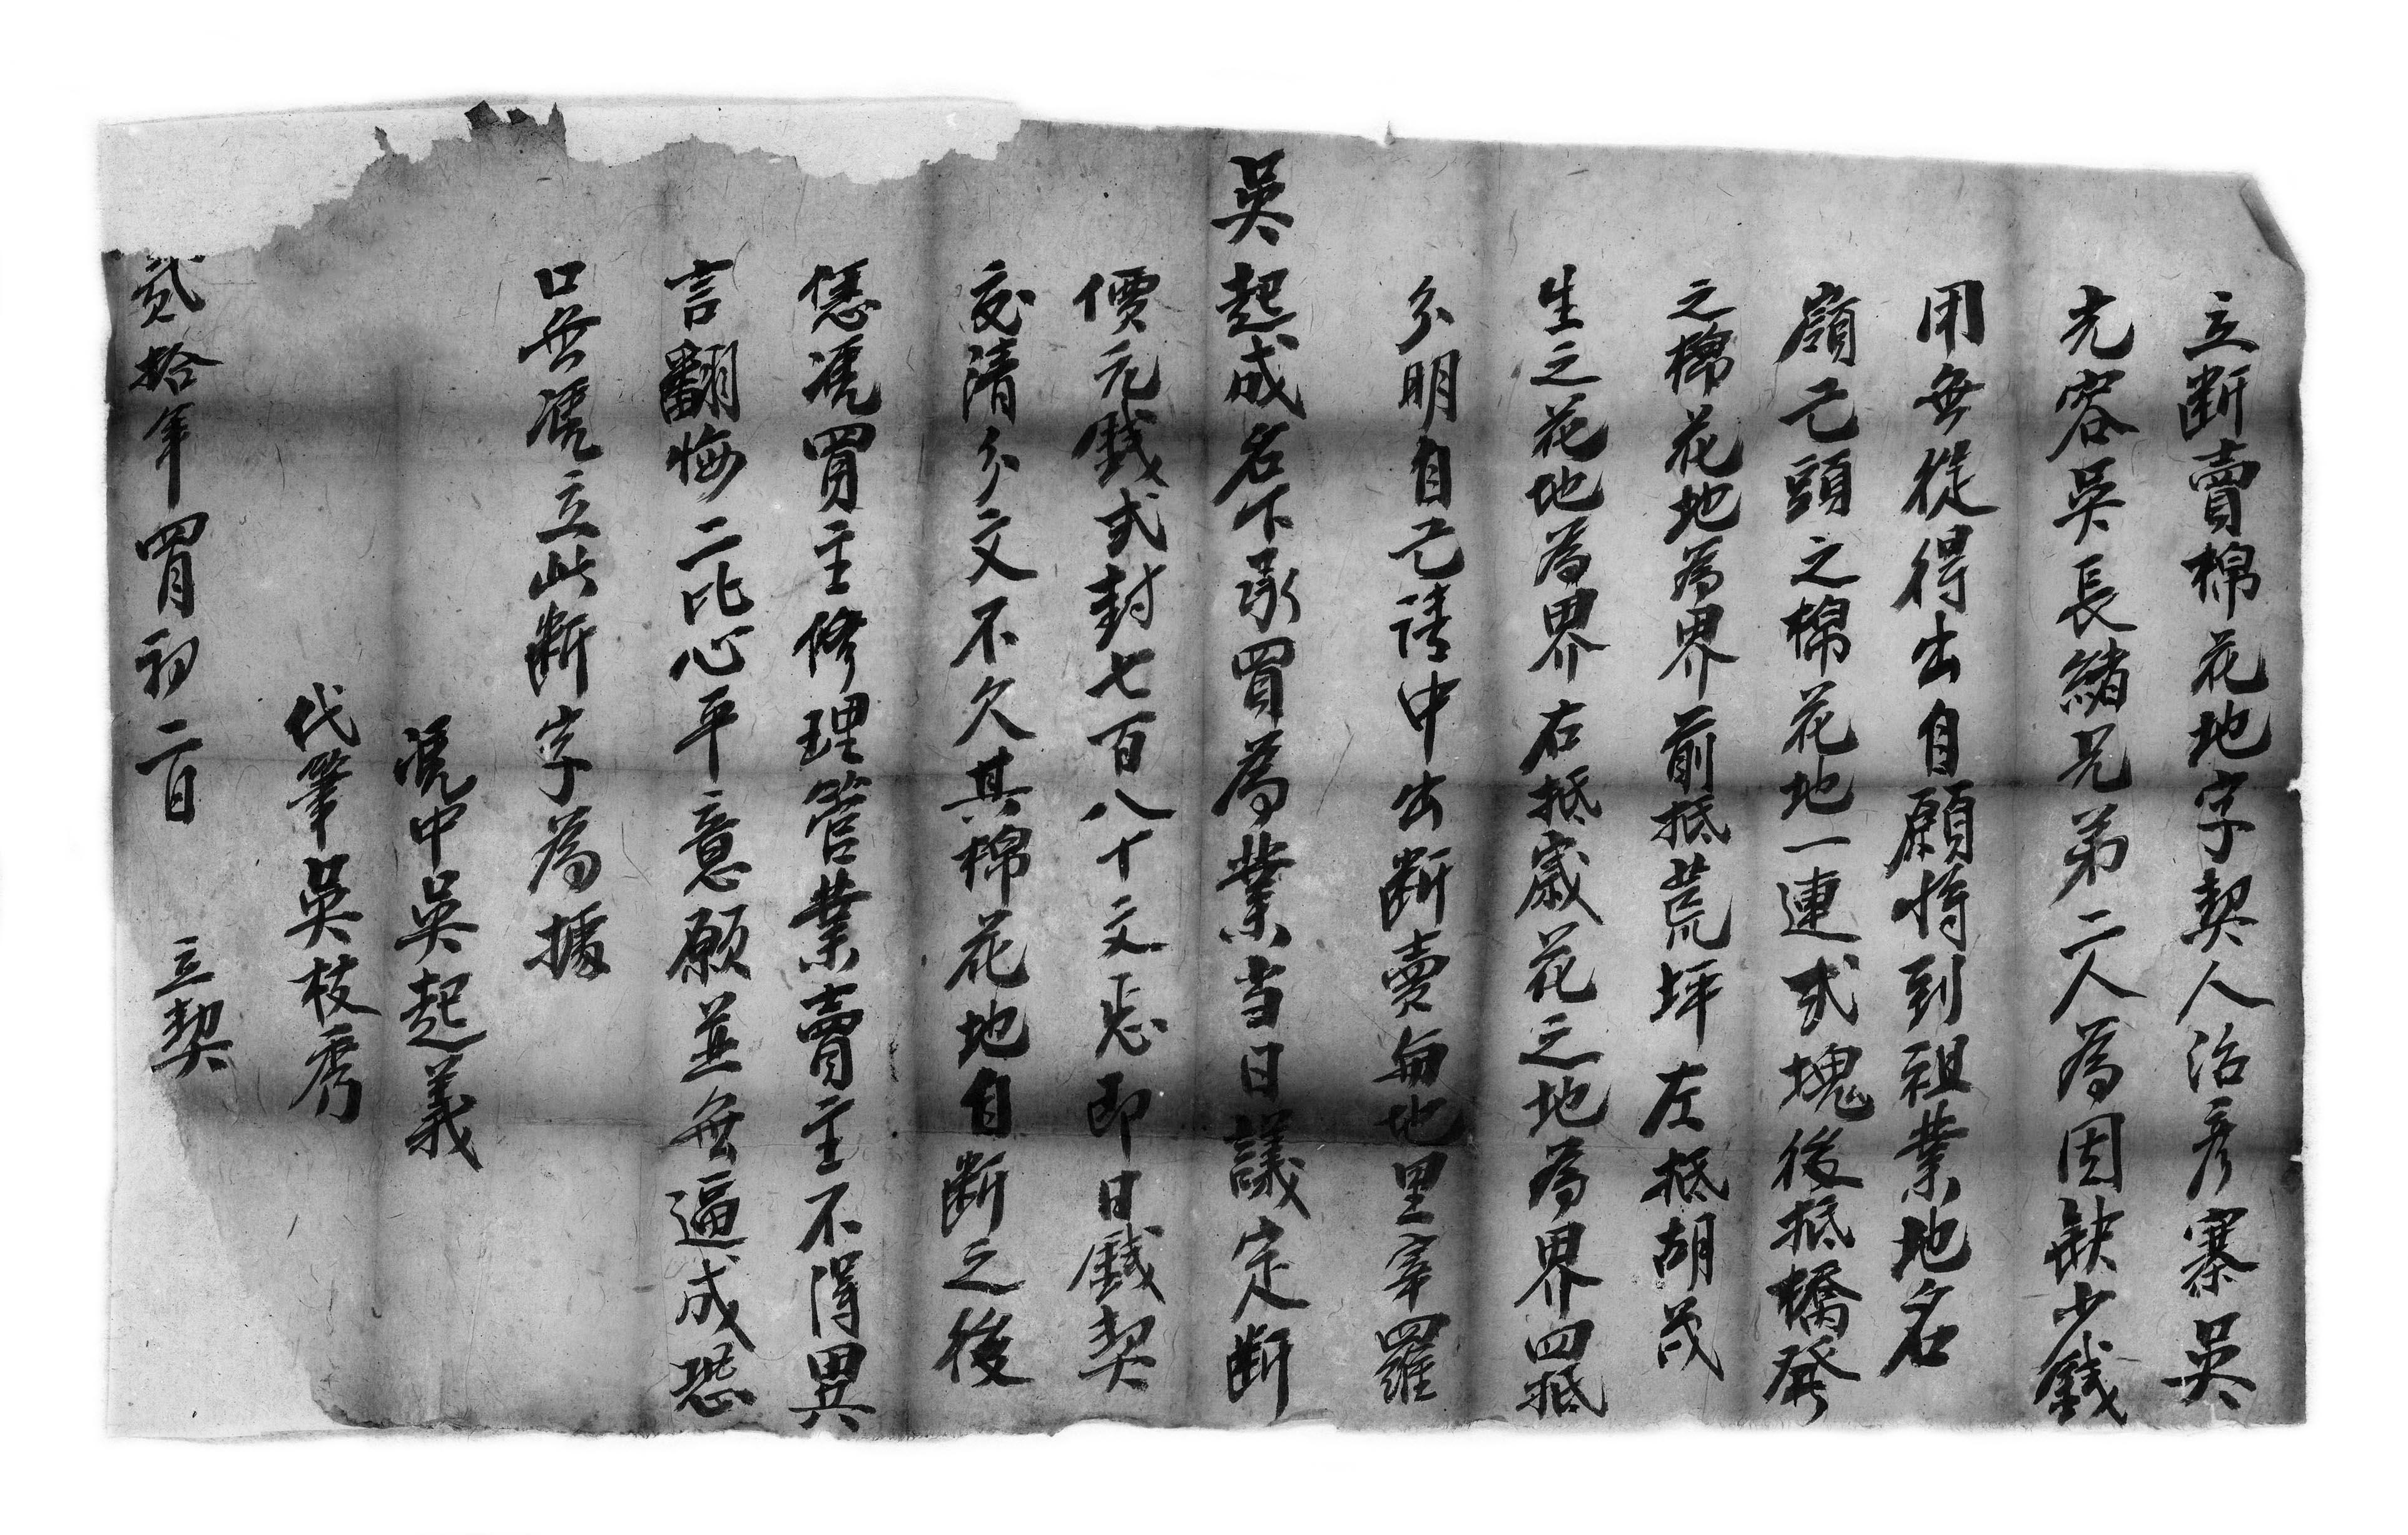 立断賣棉花地字契人治彦寨吳
光容吳長緒兄弟二人為因缺少錢
用無從得出自願将到祖業地名
嶺元頭之棉花地一連弍塊後抵橋發
之棉花地為界前抵荒坪左抵胡茂
生之花地為界右抵歲花之地為界四抵
分明自己請中出断賣與地里宰羅
吳起成名下承買為業当日議定断
價元錢弍封七百八十文忢即日錢契
交清分文不欠其棉花地自断之後
恁凴買主修理管業賣主不得異
言翻悔二比心平意願並無逼成恐
口無凴立此断字為據
凴中吳起義
代筆吳枝秀
貳拾年四月初二日 立契